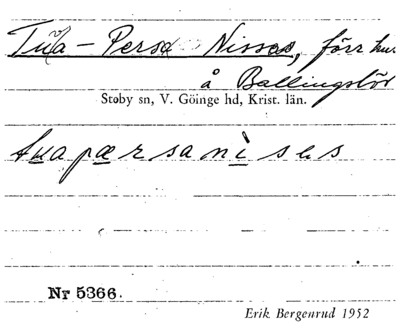 Tua-Persa Nisses, förr hu.
å Ballingslöv
Stoby sn, V. Göinge hd, Krist. län.
tuapærsanises
Nr 5366.
Erik Bergenrud 1952